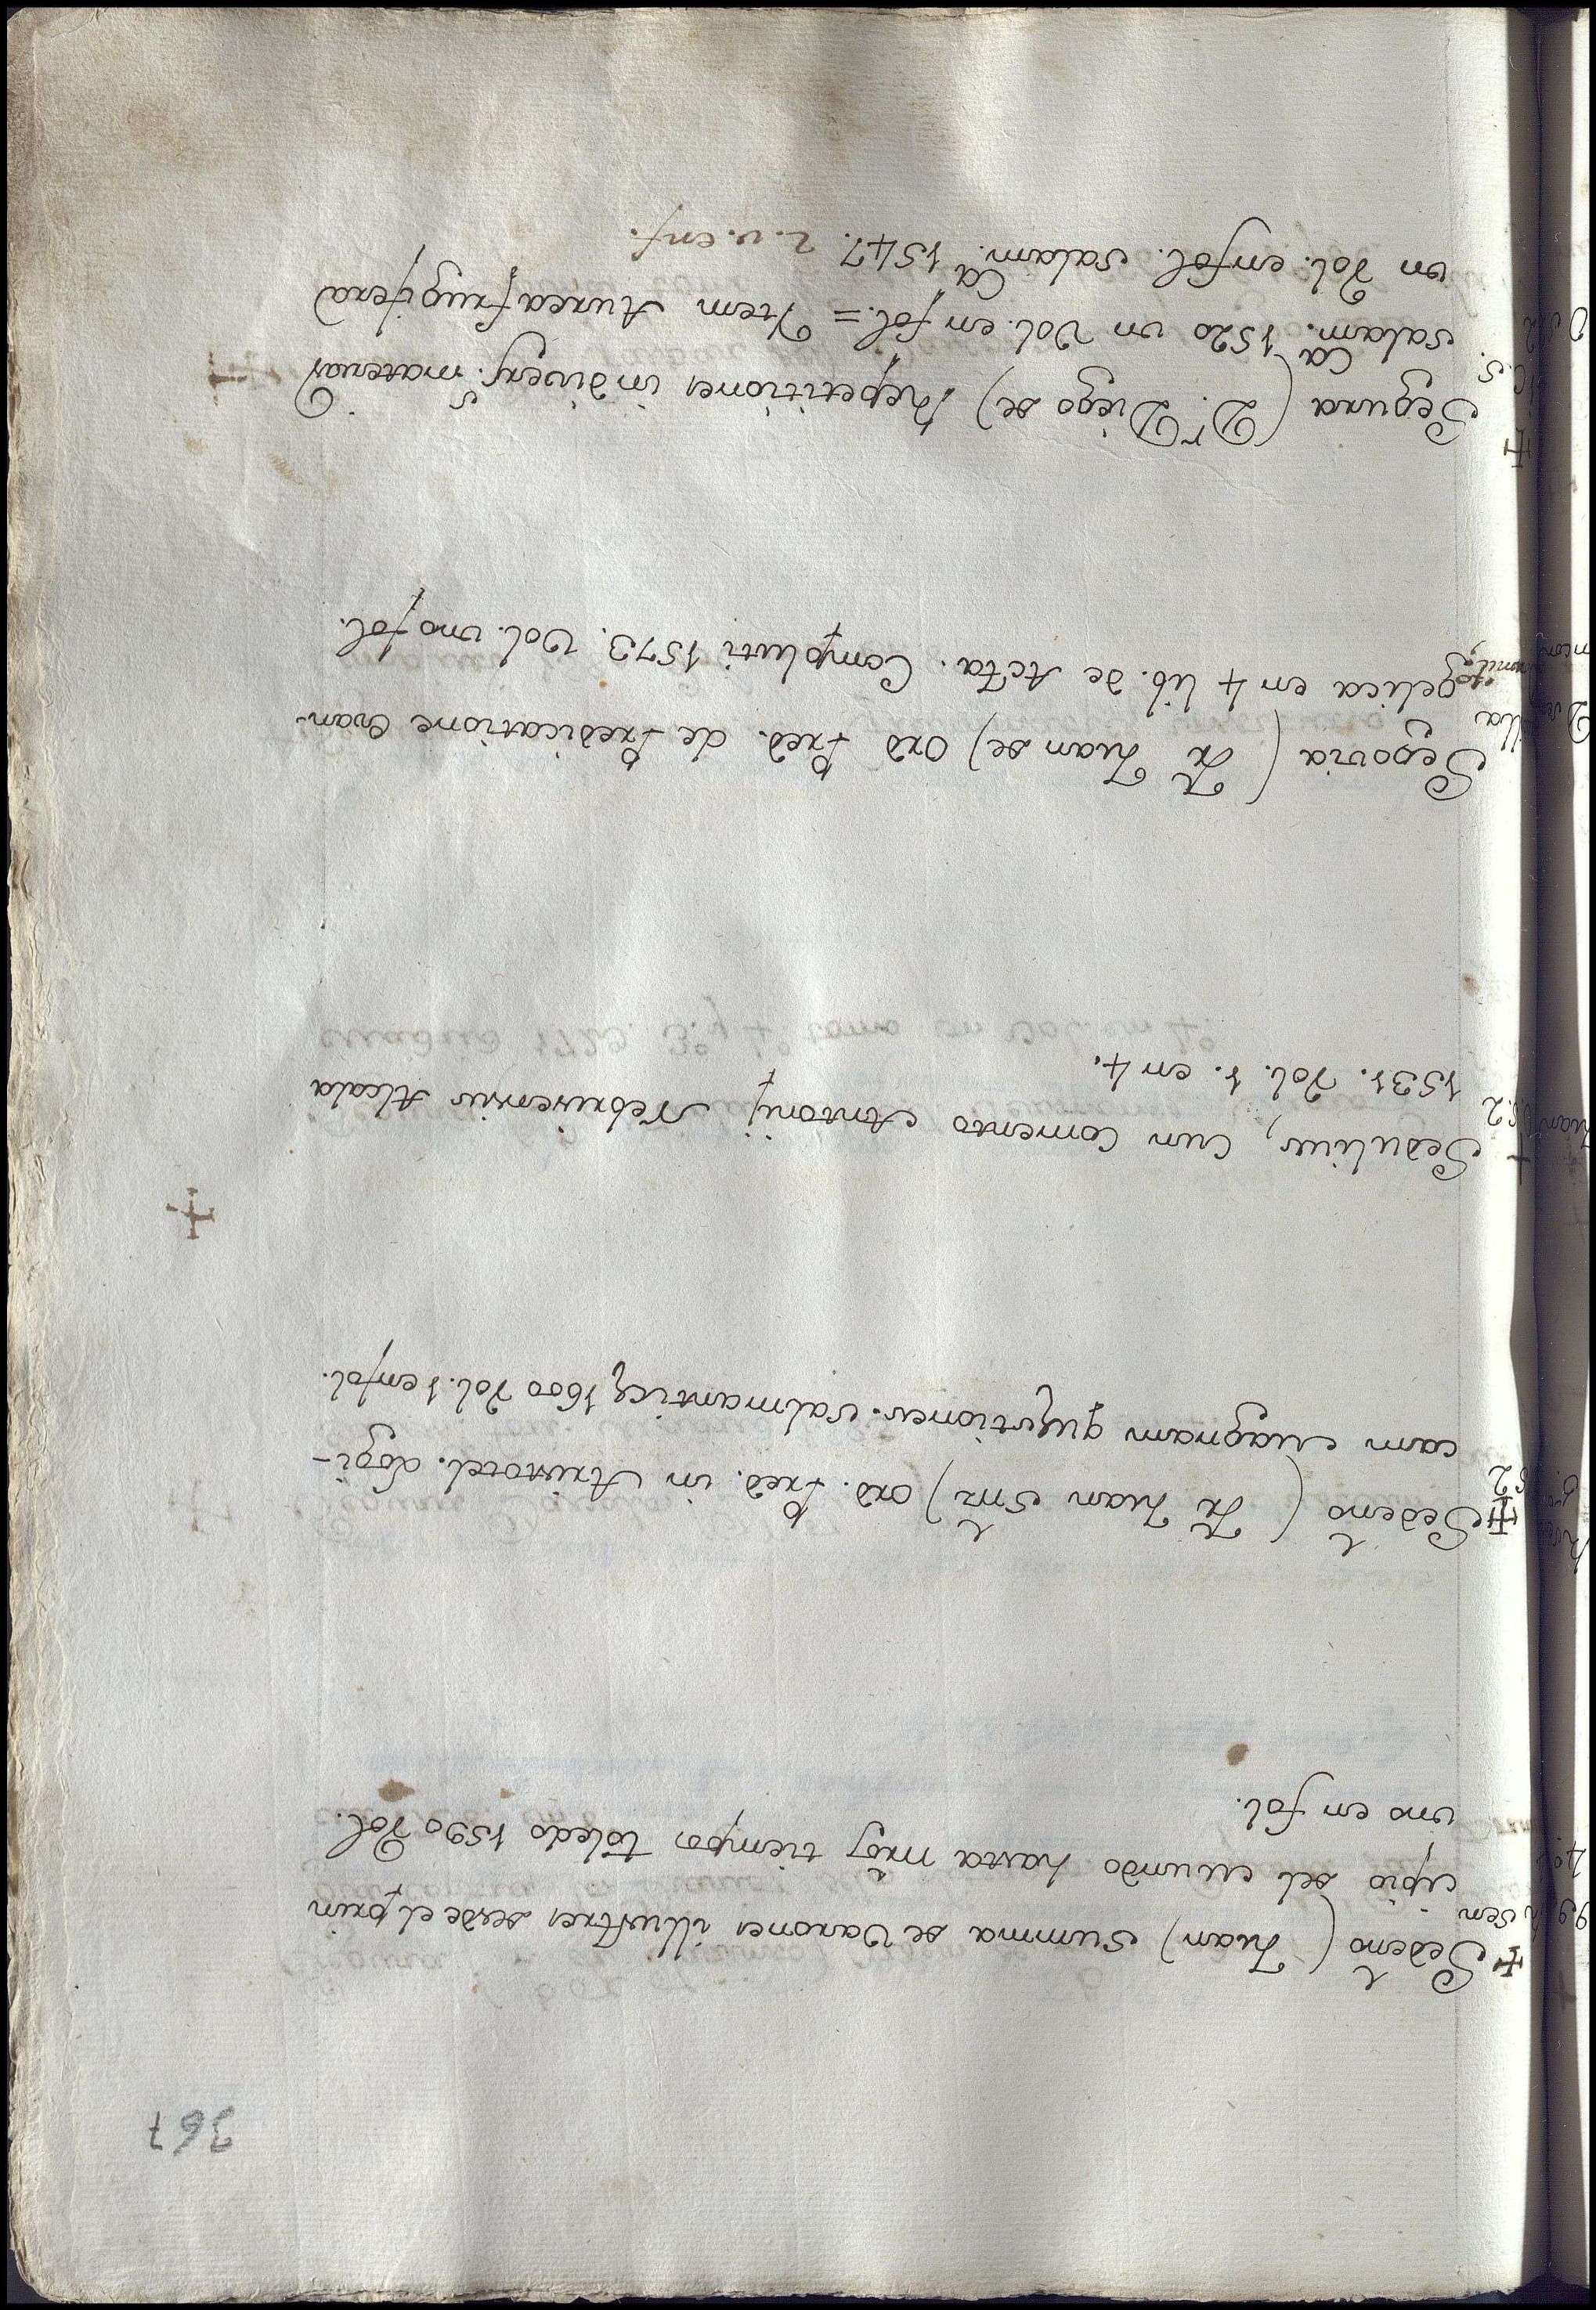 367
Sedeño (Juan) Summa de Varones illustres desde el prin
cipio del Mundo hasta nros tiempos Toledo 1590 Vol.
uno en fol.
Sedeño (Fr. Juan Snz) Ord. Pred. in Aristotel. Logi-
cam Magnam quęstiones. Salmanticę 1600 Vol. 1 en fol.
Sedulius, cum Comento Antonij Nebrisensis Alcala
1531. Vol. 1. en 4.
Segovia (Fr. Juan de) Ord Pred. de Predicatione Evan-
gelica en 4 lib. de Acta. Compluti 1573. Vol. uno fol.
Segura (Dr. D. Diego de) Repetitiones in divers.s materias
Salam.ca 1520 un Vol. en fol. = Item Aurea frugifera
un Vol. en fol. Salam.ca 1547. 2. v. en f.